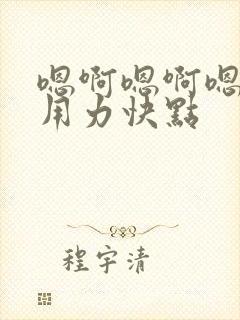 嗯啊嗯啊嗯
用力快點
程宇清